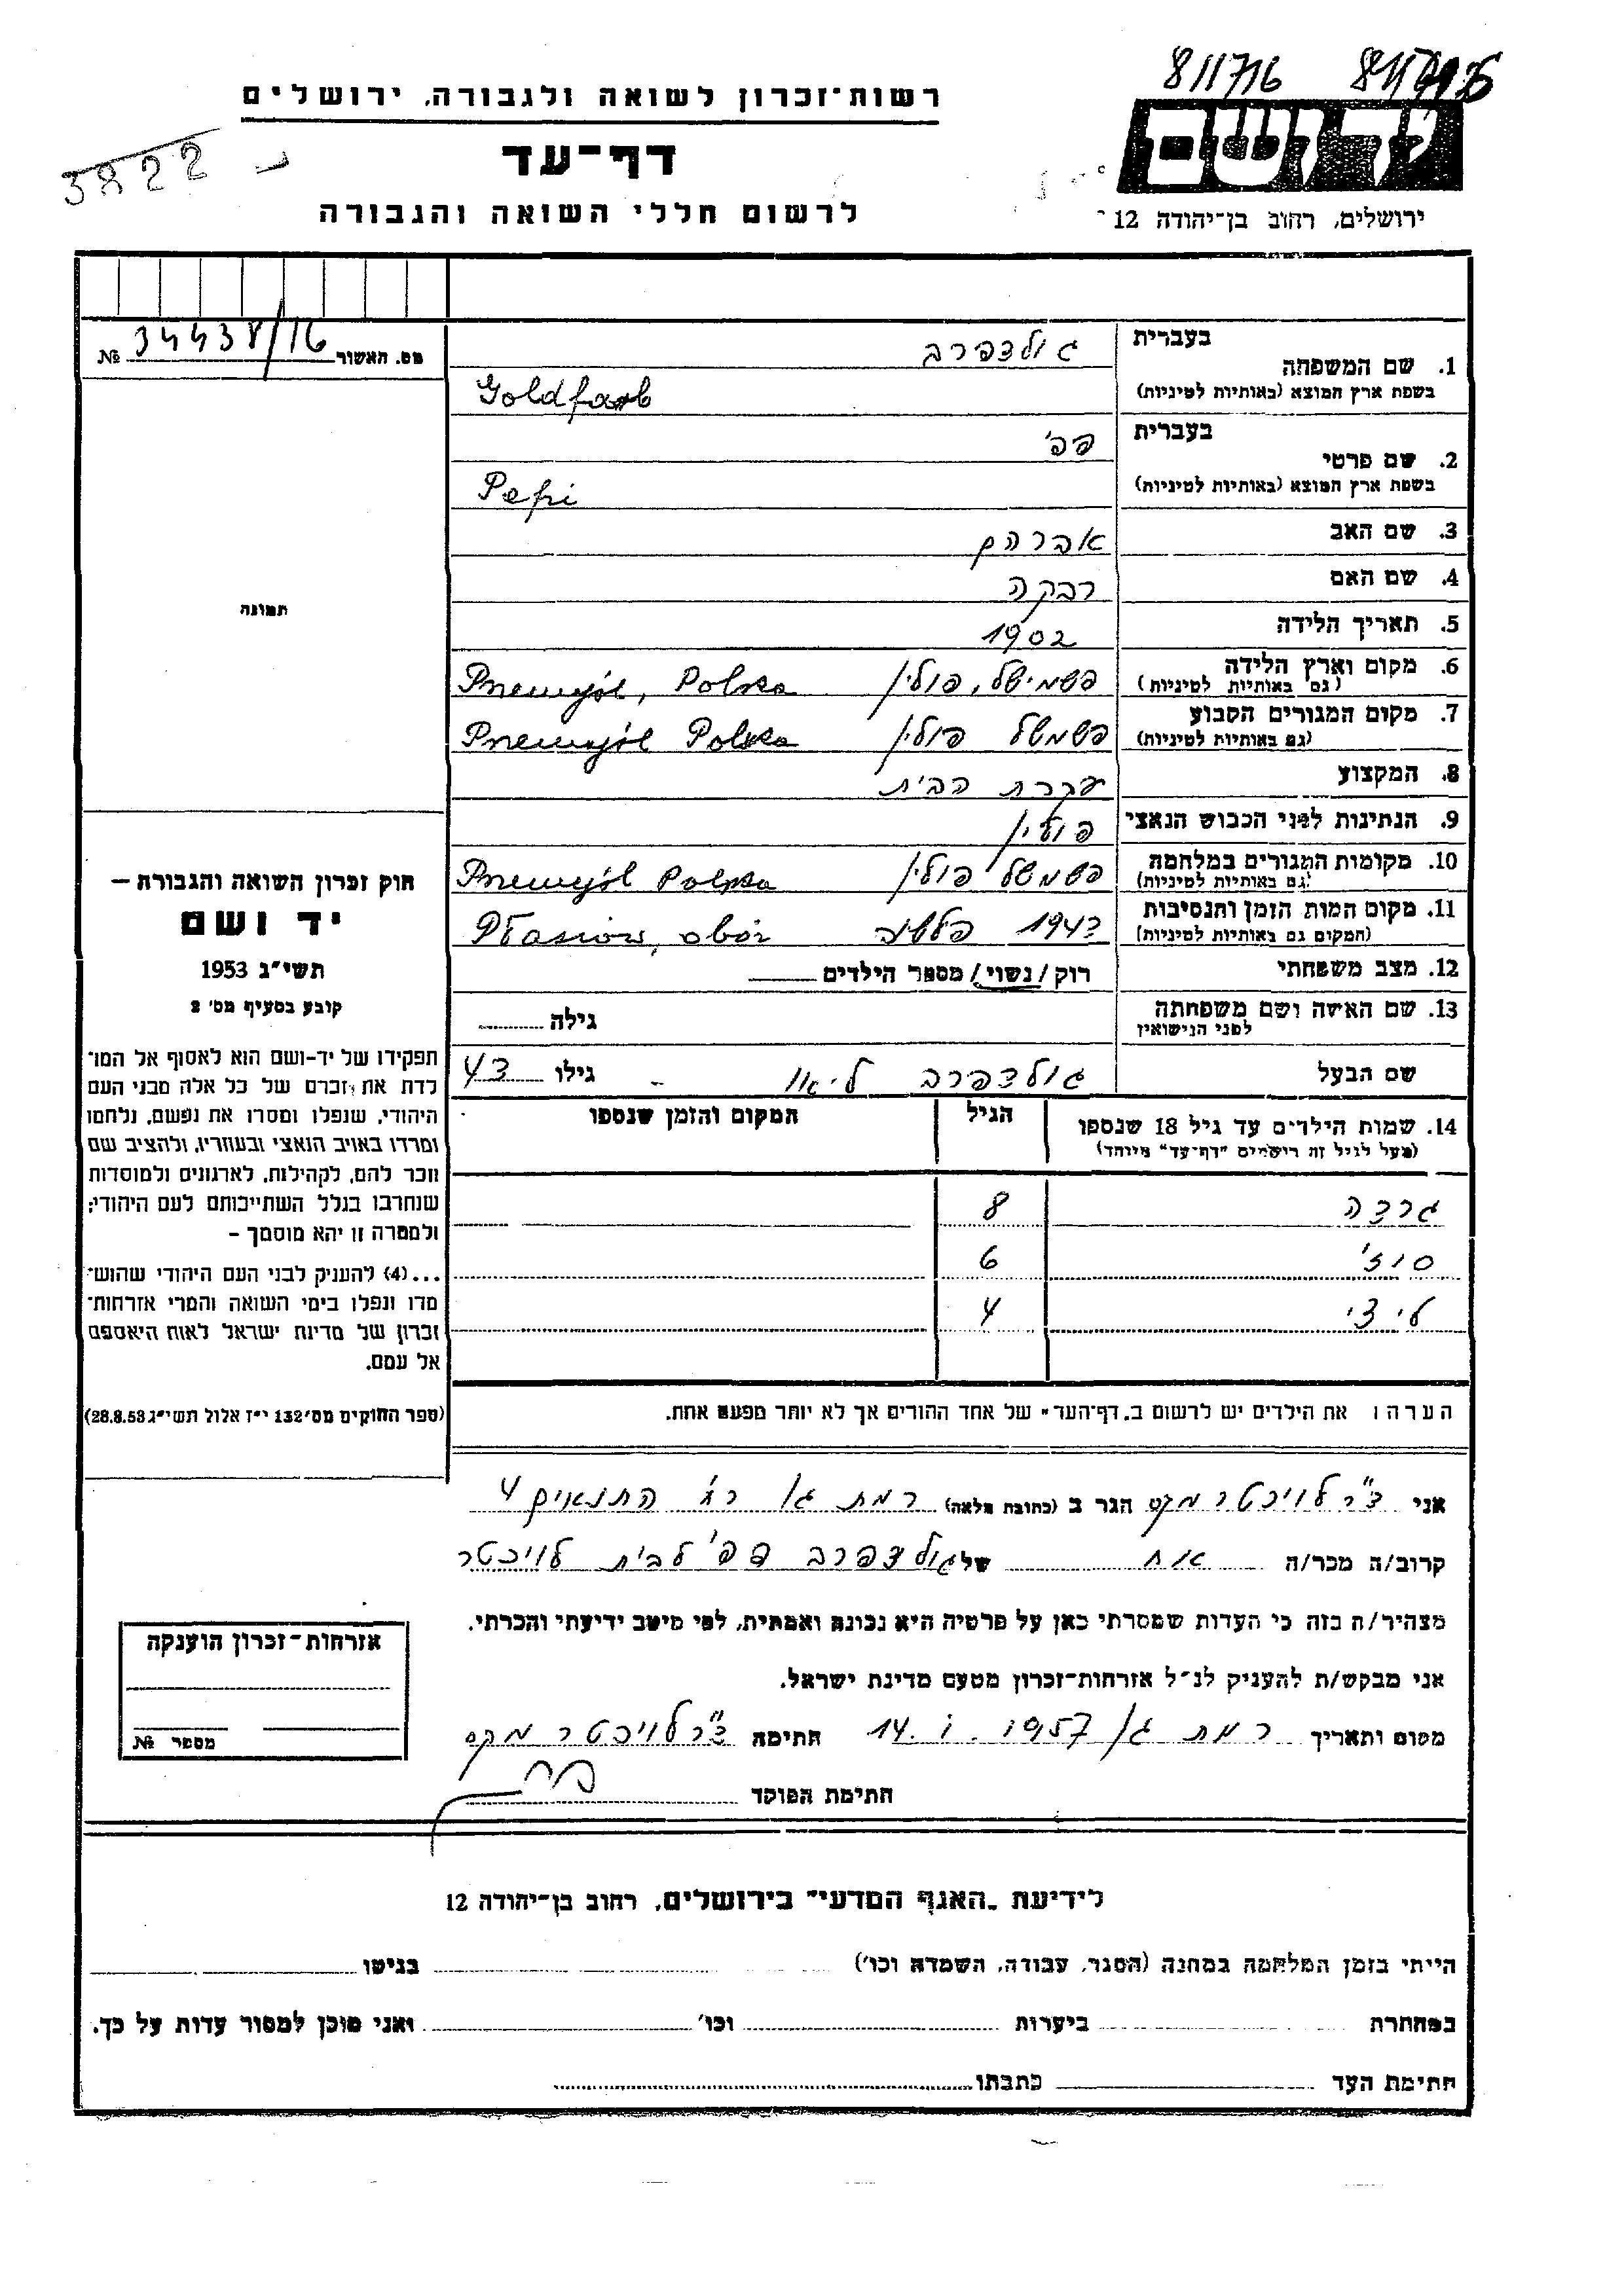 811716
רשות־זכרון לשואה ולגבורה, ירושלים
3822
דף־עד
ידושם
לרשום חללי השואה והגבורה
ירושלים, רחוב בן־יהודה 12
מס. האשור 34438/16 №
1. שם המשפחה בעברית גולדפרב
בשפת ארץ המוצא (באותיות לטיניות) Goldfarb
2. שם פרטי בעברית פפי
בשפת ארץ המוצא (באותיות לטיניות) Pepi
3. שם האב אברהם
4. שם האם רבקה
תמונה
5. תאריך הלידה 1902
6. מקום וארץ הלידה (גם באותיות לטיניות) פשמישל, פולין Przemyśl, Polska
7. מקום המגורים הקבוע (גם באותיות לטיניות) פשמשל פולין Przemyśl Polska
8. המקצוע עקרת הבית
9. הנתינות לפני הכבוש הנאצי פולין
10. מקומות המגורים במלחמה (גם באותיות לטיניות) פשמשל פולין Przemyśl Polska
11. מקום המות הזמן והנסיבות (המקום גם באותיות לטיניות) 1943 Płaszow, obóz
12. מצב משפחתי רוק/נשוי/מספר הילדים
13. שם האישה ושם משפחתה לפני הנישואין גילה
שם הבעל גולדפרב ליאון - גילו 43
14. שמות הילדים עד גיל 18 שנספו הגיל המקום והזמן שנספו
(מעל לגיל זה רישמים "דף־עד" מיוחד)
גרדה 8
סוזי 6
לידי 4
הערה: את הילדים יש לרשום ב"דף־העד" של אחד ההורים אך לא יותר מפעם אחת.
חוק זכרון השואה והגבורה –
יד ושם
תשי"ג 1953
קובע בסעיף מס' 2
תפקידו של יד-ושם הוא לאסוף אל המו־
לדת את זכרם של כל אלה מבני העם
היהודי, שנפלו ומסרו את נפשם, נלחמו
ומרדו באויב הנאצי ובעוזריו, ולהציב שם
וזכר להם, לקהילות, לארגונים ולמוסדות
שנחרבו בגלל השתייכותם לעם היהודי;
ולמטרה זו יהא מוסמך –
...(4) להעניק לבני העם היהודי שהוש־
מדו ונפלו בימי השואה והמרי אזרחות־
זכרון של מדינת ישראל לאות היאספם
אל עמם.
(ספר החוקים מס' 132 י"ז אלול תשי"ג 28.8.53)
אני ד"ר לויכטר מקס הגר ב (כתובת מלאה) רמת גן רח' התנאים 4
קרוב/ה מכר/ה אח של גולדפרב פפי לבית לויכטר
מצהיר/ה בזה כי העדות שמסרתי כאן על פרטיה היא נכונה ואמתית, לפי מיטב ידיעתי והכרתי.
אני מבקש/ת להעניק לנ"ל אזרחות־זכרון מטעם מדינת ישראל.
מקום ותאריך רמת גן 14.1.1957 חתימה ד"ר לויכטר מקס
חתימת הפוקד
אזרחות־זכרון הוענקה
מספר №
לידיעת "האגף המדעי" בירושלים, רחוב בן־יהודה 12
הייתי בזמן המלחמה במחנה (הסגר, עבודה, השמדה וכו') בגיטו
במחתרת ביערות וכו' ואני מוכן למסור עדות על כך.
חתימת העד כתבתו